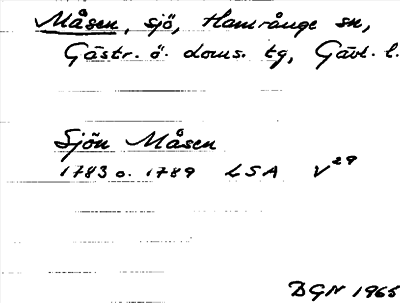 Måsen, sjö, Hamrånge sn,
Gästr. ö. doms. tg, Gävl. l.
Sjön Måsen
1783 o. 1789 LSA V²⁹
DGN 1965